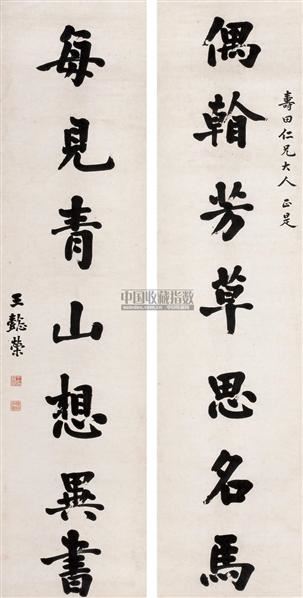 壽田仁兄大人正是
偶翰芳草思名馬
每見青山想異書
王懿榮
中国收藏指数